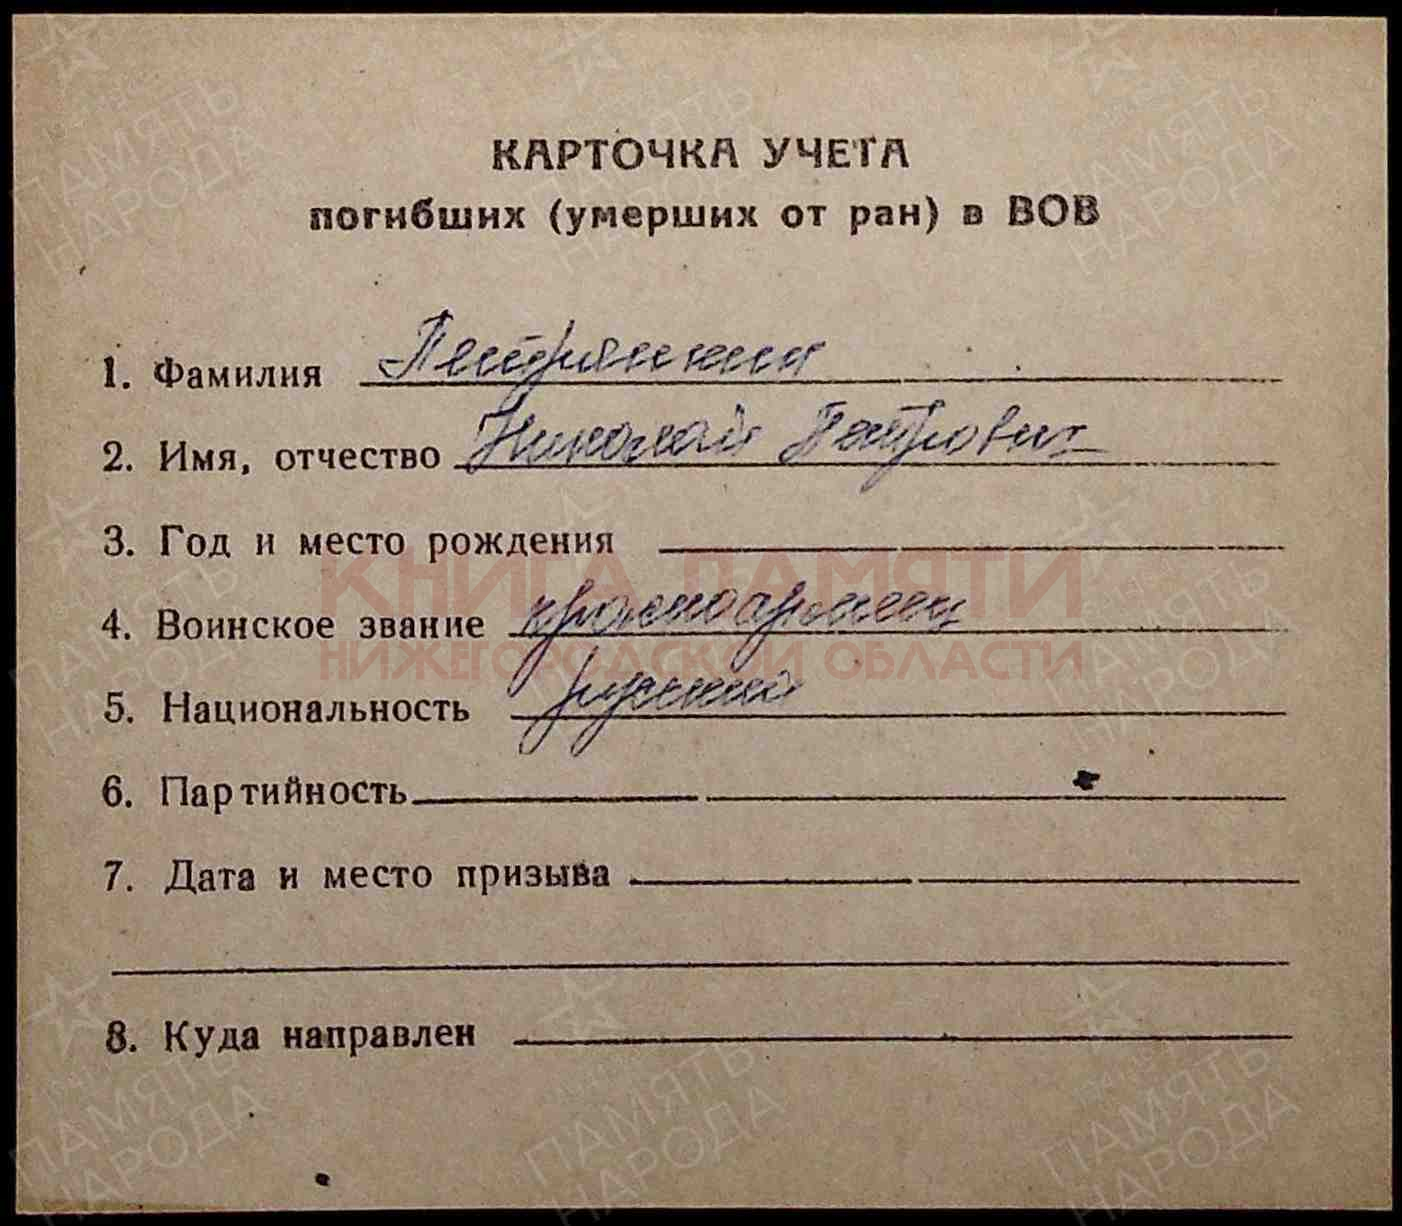 КАРТОЧКА УЧЕТА
погибших (умерших от ран) в ВОВ
1. Фамилия Петрянкин
2. Имя, отчество Николай Петрович
3. Год и место рождения
КНИГА ПАМЯТИ
4. Воинское звание красноармеец
НИЖЕГОРОДСКОЙ ОБЛАСТИ
5. Национальность русский
6. Партийность
7. Дата и место призыва
8. Куда направлен
ПАМЯТЬ НАРОДА